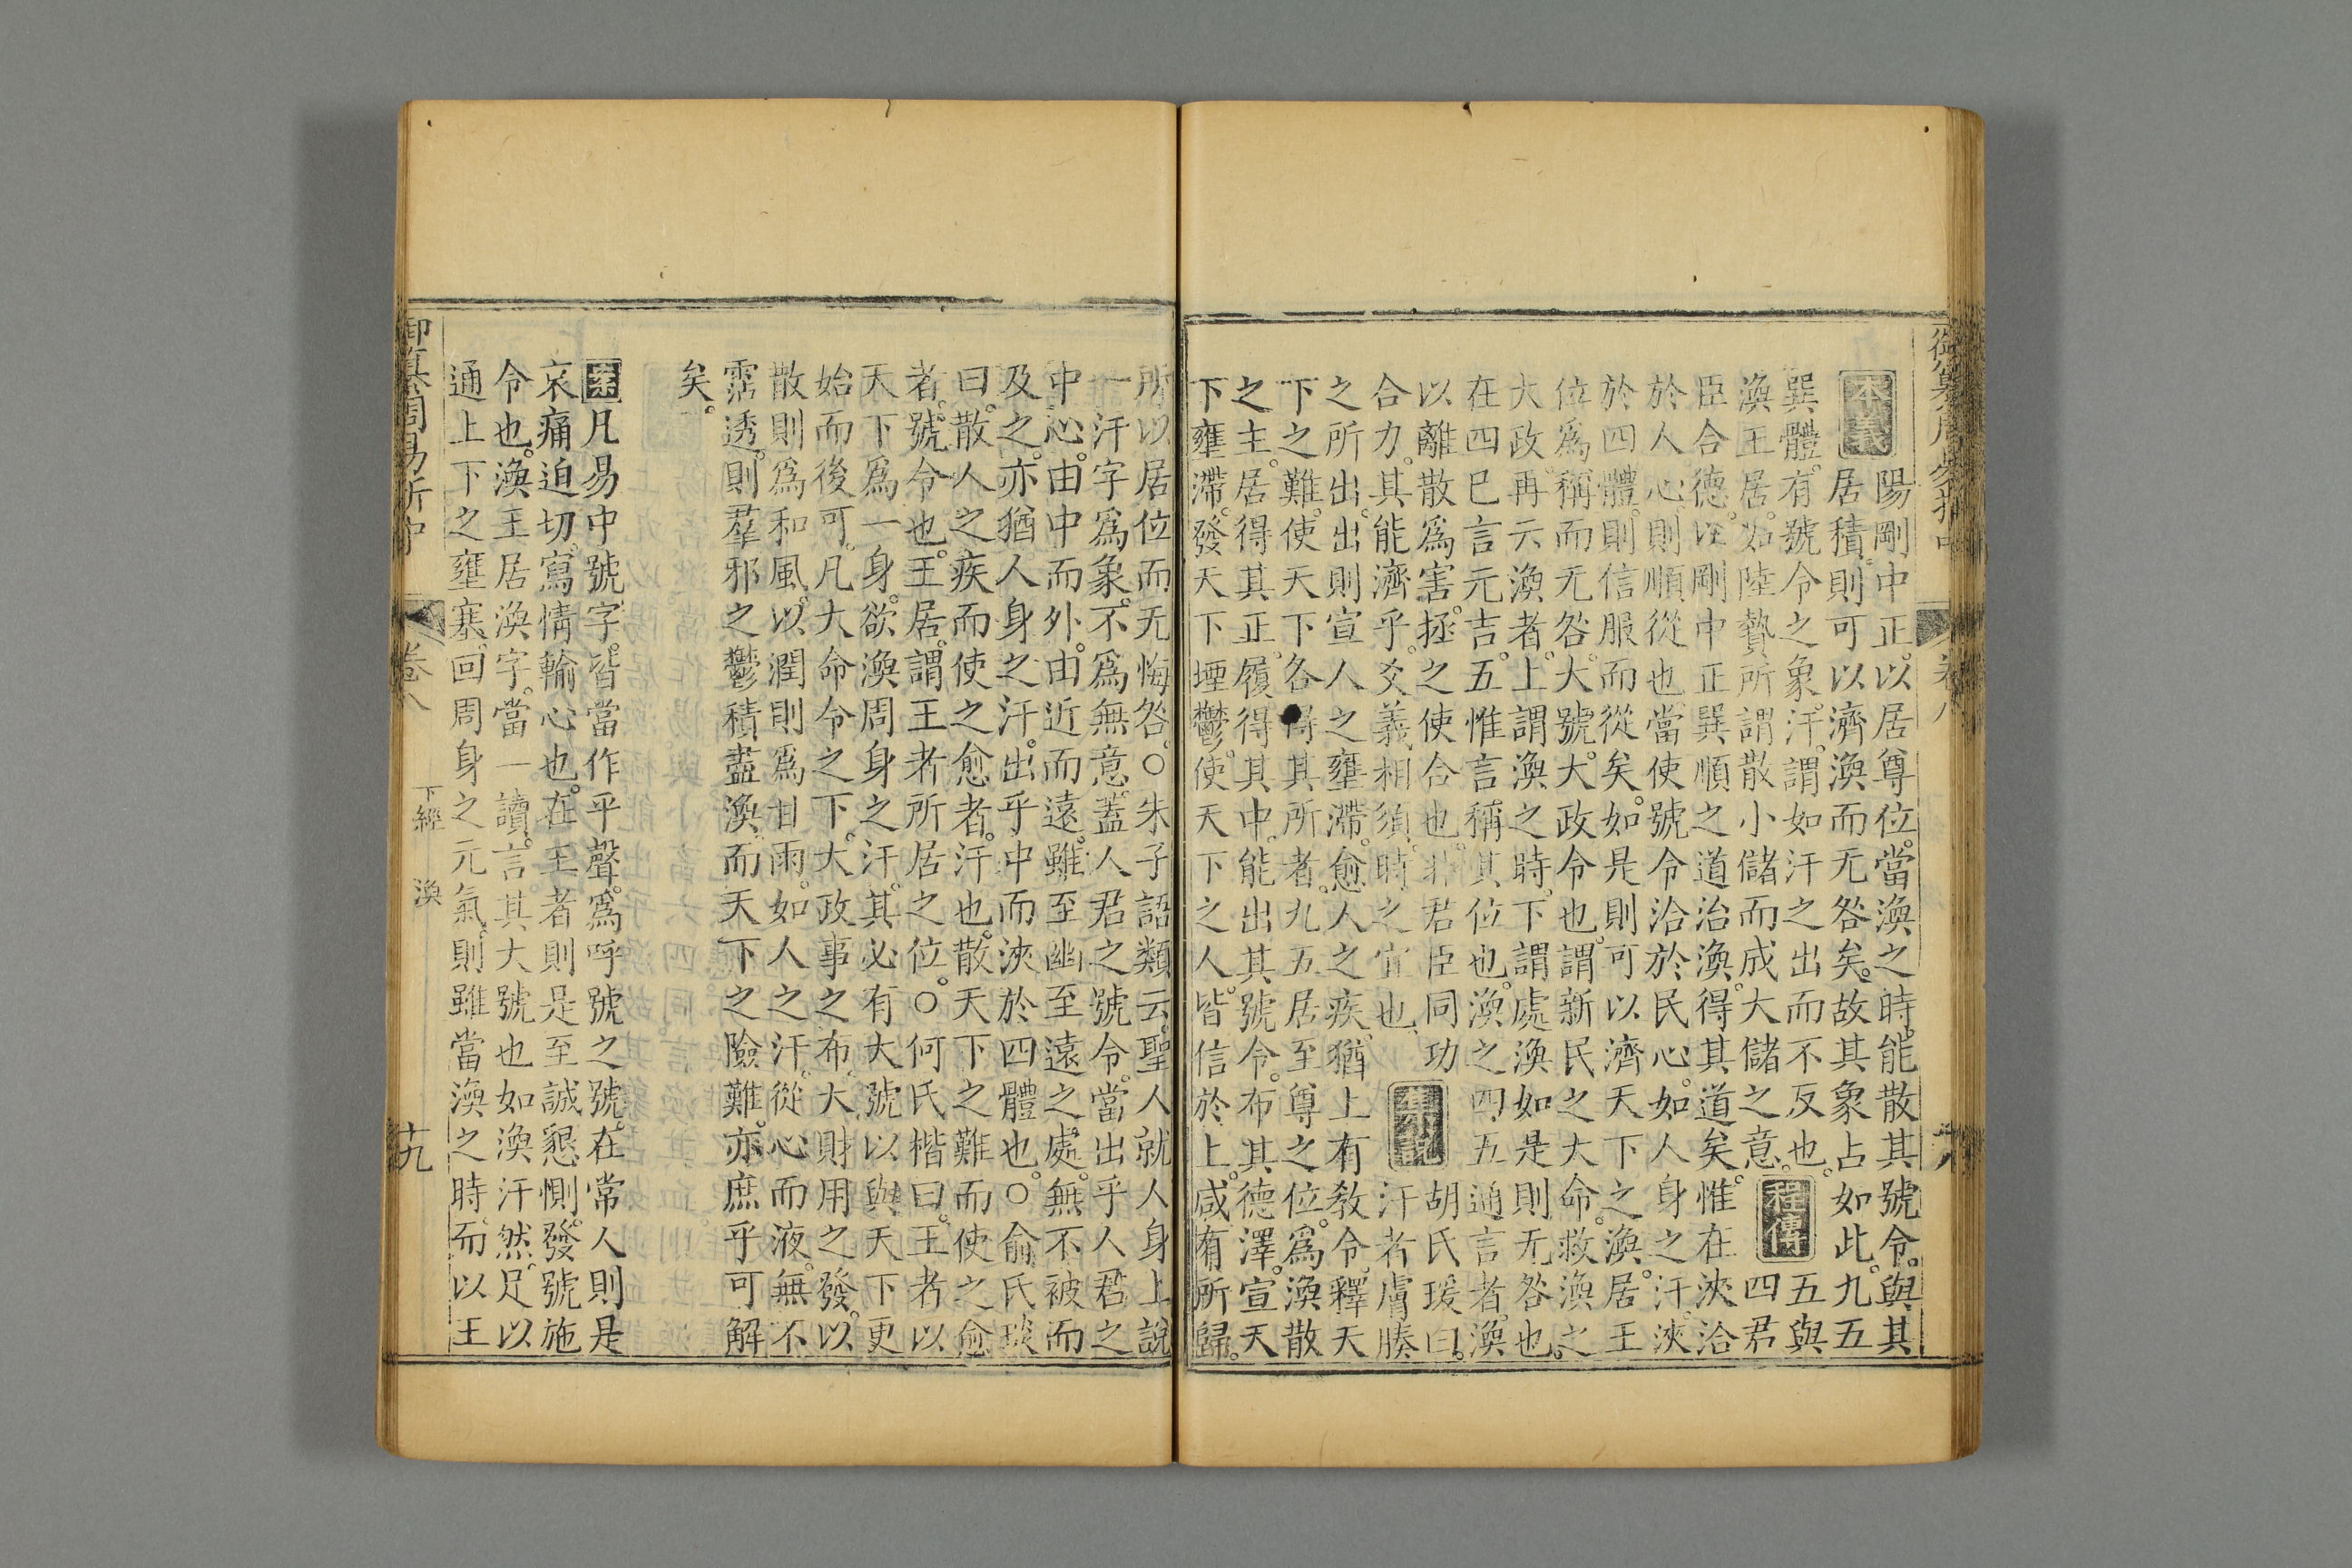 御纂周易折中 卷八 十八
本義 陽剛中正。以居尊位。當渙之時。能散其號令。與其
居積。則可以濟渙而无咎矣。故其象占如此。九五
巽體。有號令之象。汗。謂如汗之出而不反也。程傳 五與
渙王居。如陸贄所謂散小儲而成大儲之意。四君
臣合德。以剛中正巽順之道治渙。得其道矣。惟在浹洽
於人心。則順從也。當使號令洽於民心。如人身之汗。浹
於四體。則信服而從矣。如是則可以濟天下之渙。居王
位爲稱而无咎。大號。大政令也。謂新民之大命。救渙之
大政。再云渙者。上謂渙之時。下謂處渙如是則无咎也。
在四已言元吉。五惟言稱其位也。渙之四五通言者。渙
以離散爲害。拯之使合也。非君臣同功 集說 胡氏瑗曰。
合力。其能濟乎。爻義相須。時之宜也。 汗者膚腠
之所出。出則宣人之壅滯。愈人之疾。猶上有教令。釋天
下之難。使天下各得其所者。九五居至尊之位。爲渙散
之主。居得其正。履得其中。能出其號令。布其德澤。宣天
下壅滯。發天下堙鬱。使天下之人。皆信於上。咸有所歸。
所以居位而无悔咎。○朱子語類云。聖人就人身上說
一汗字爲象。不爲無意。蓋人君之號令。當出乎人君之
中心。由中而外。由近而遠。雖至幽至遠之處。無不被而
及之。亦猶人身之汗。出乎中而浹於四體也。○俞氏琰
曰。散人之疾而使之愈者。汗也。散天下之難而使之愈
者。號令也。王居。謂王者所居之位。○何氏楷曰。王者以
天下爲一身。欲渙周身之汗。其必有大號以與天下更
始而後可。凡大命令之下。大政事之布。大財用之發。以
散則爲和風。以潤則爲甘雨。如人之汗。從心而液。無不
霑透。則羣邪之鬱積盡渙。而天下之險難。亦庶乎可解
矣。
案凡易中號字。皆當作平聲。爲呼號之號。在常人則是
哀痛迫切。寫情輸心也。在王者則是至誠懇惻。發號施
令也。渙王居渙字。當一讀。言其大號也如渙汗然。足以
通上下之壅塞。回周身之元氣。則雖當渙之時。而以王
御纂周易折中 卷八 下經 渙 十九